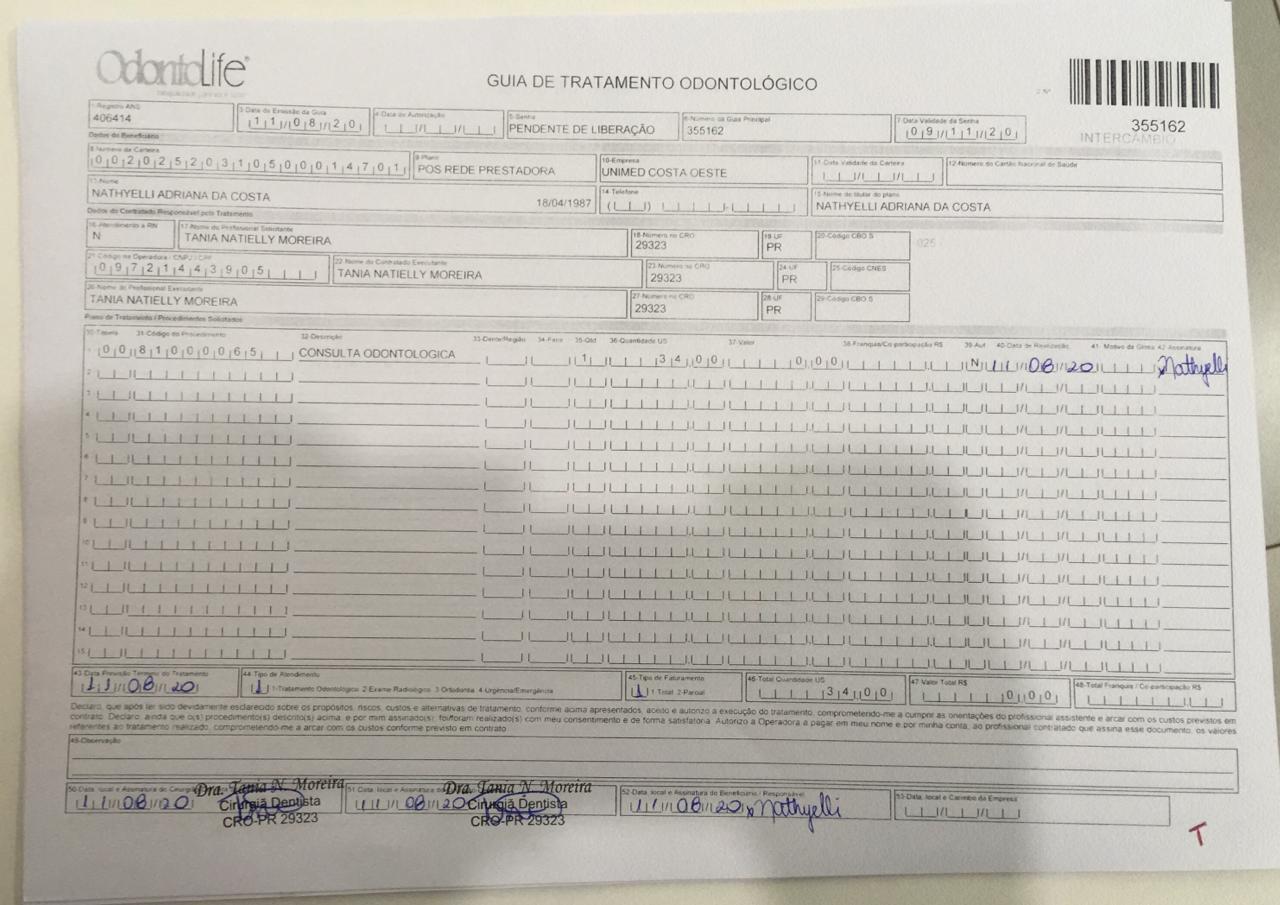 OdontoLife
GUIA DE TRATAMENTO ODONTOLÓGICO
2-Nº
355162
INTERCÂMBIO
1-Registro ANS
406414
3-Data de Emissão da Guia
11/08/20
4-Data de Autorização
5-Senha
PENDENTE DE LIBERAÇÃO
6-Número da Guia Principal
355162
7-Data Validade da Senha
09/11/20
Dados do Beneficiário
8-Número da Carteira
00202520310500014701
9-Plano
POS REDE PRESTADORA
10-Empresa
UNIMED COSTA OESTE
11-Data Validade da Carteira
12-Número do Cartão Nacional de Saúde
13-Nome
NATHYELLI ADRIANA DA COSTA 18/04/1987
14-Telefone
15-Nome do titular do plano
NATHYELLI ADRIANA DA COSTA
Dados do Contratado Responsável pelo Tratamento
16-Atendimento a RN
N
17-Nome do Profissional Solicitante
TANIA NATIELLY MOREIRA
18-Número no CRO
29323
19-UF
PR
20-Código CBO S
025
21-Código na Operadora / CNPJ / CPF
09721443905
22-Nome do Contratado Executante
TANIA NATIELLY MOREIRA
23-Número no CRO
29323
24-UF
PR
25-Código CNES
26-Nome do Profissional Executante
TANIA NATIELLY MOREIRA
27-Número no CRO
29323
28-UF
PR
29-Código CBO S
Plano de Tratamento / Procedimentos Solicitados
30-Tabela 31-Código do Procedimento 32-Descrição 33-Dente/Região 34-Face 35-Qtd 36-Quantidade US 37-Valor 38-Franquia/Co-participação R$ 39-Aut 40-Data de Realização 41-Motivo da Glosa 42-Assinatura
00 81000065 CONSULTA ODONTOLOGICA 1 34 00 0 00 N 11/08/20 Nathyelli
2
3
4
5
6
7
8
9
10
11
12
13
14
15
43-Data Previsão Término do Tratamento
11/08/20
44-Tipo de Atendimento
1 1-Tratamento Odontológico 2 Exame Radiológico 3 Ortodontia 4 Urgência/Emergência
45-Tipo de Faturamento
1 1 Total 2-Parcial
46-Total Quantidade US
34 00
47 Valor Total R$
0 00
48-Total Franquia / Co-participação R$
Declaro, que após ter sido devidamente esclarecido sobre os propósitos, riscos, custos e alternativas de tratamento, conforme acima apresentados, aceito e autorizo a execução do tratamento, comprometendo-me a cumprir as orientações do profissional assistente e arcar com os custos previstos em
contrato. Declaro, ainda que o(s) procedimento(s) descrito(s) acima, e por mim assinado(s), foi/foram realizado(s) com meu consentimento e de forma satisfatória. Autorizo a Operadora a pagar em meu nome e por minha conta, ao profissional contratado que assina esse documento, os valores
referentes ao tratamento realizado, comprometendo-me a arcar com os custos conforme previsto em contrato
49-Observação
50-Data, local e Assinatura do Cirurgião
11/08/20
Dra. Tania N. Moreira
Cirurgiã Dentista
CRO-PR 29323
51 Data, local e Assinatura
11/08/20
Dra. Tania N. Moreira
Cirurgiã Dentista
CRO-PR 29323
52-Data, local e Assinatura do Beneficiário / Responsável
11/08/20 x Nathyelli
53-Data, local e Carimbo da Empresa
T